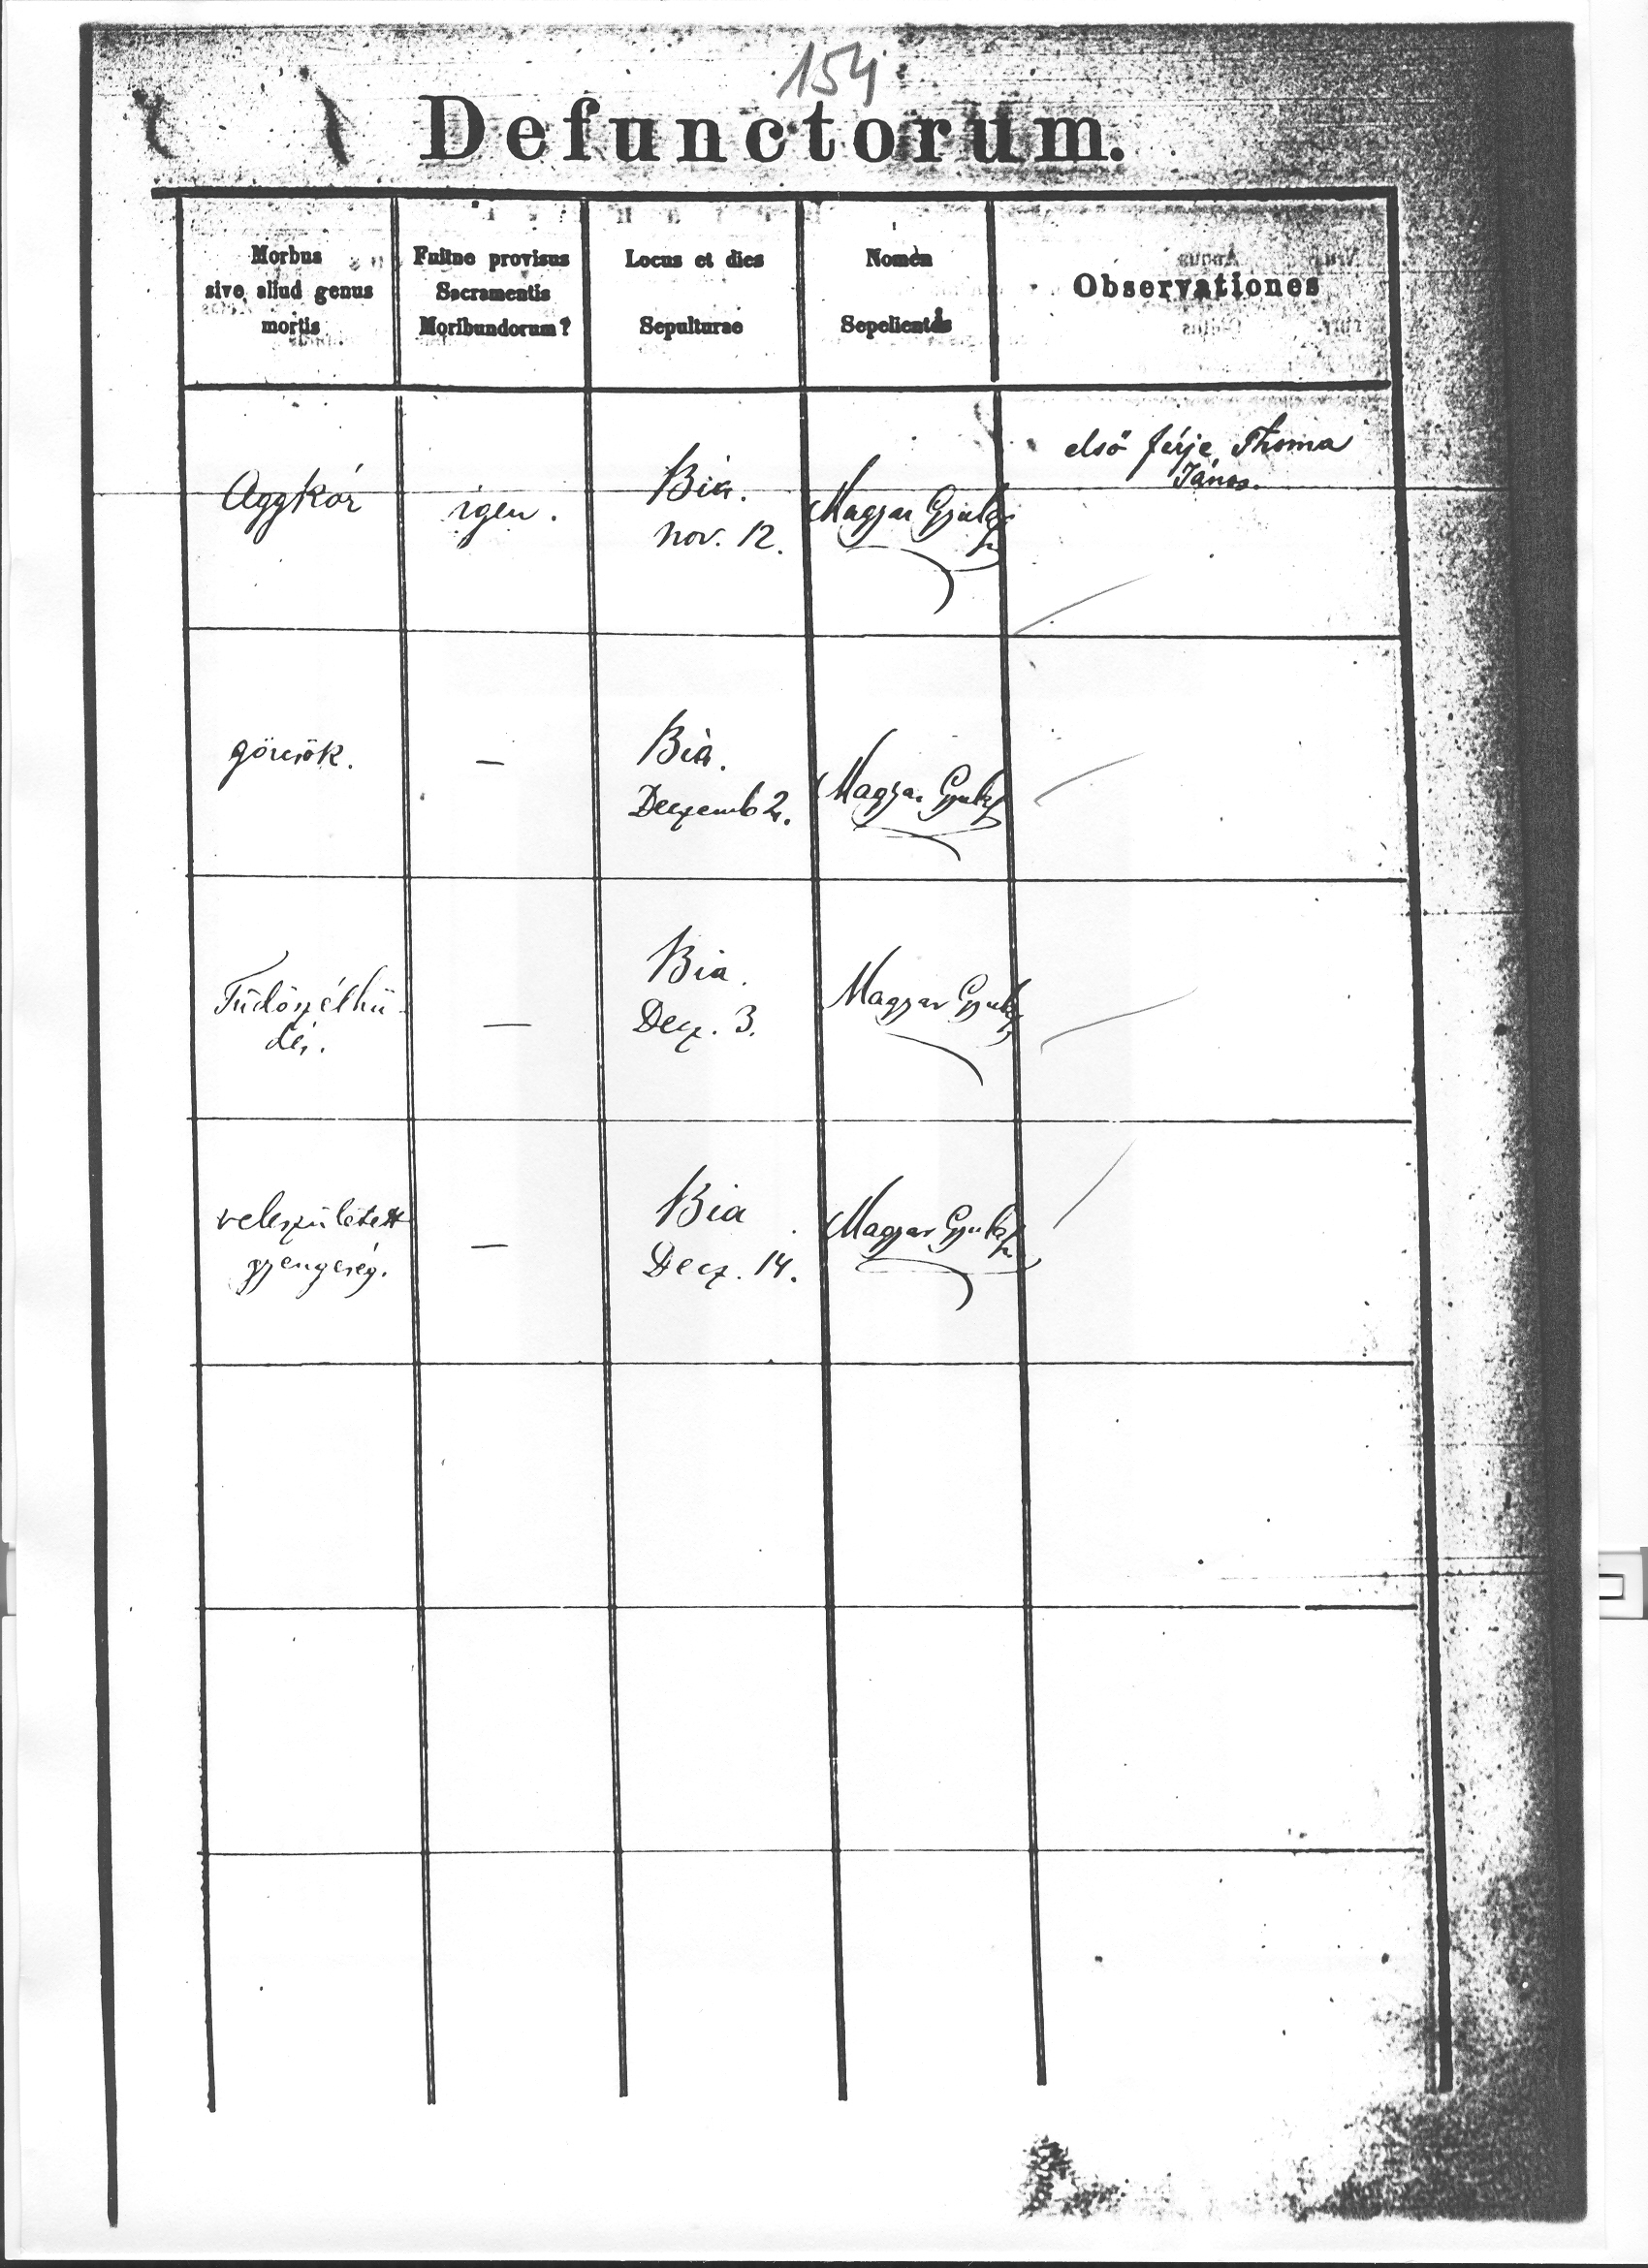 154
Defunctorum.
Morbus
sive aliud genus
mortis
Fuitne provisus
Sacramentis
Moribundorum?
Locus et dies
Sepulturae
Nomen
Sepelientis
Observationes
Aggkór
igen.
Bia.
nov. 12.
Magyar Gyula
első férje Thoma
János.
görcsök.
—
Bia.
Deczemb 2.
Magyar Gyula
Tüdőszélhű-
dés.
—
Bia.
Decz. 3.
Magyar Gyula
veleszületett
gyengeség.
—
Bia
Decz. 14.
Magyar Gyula